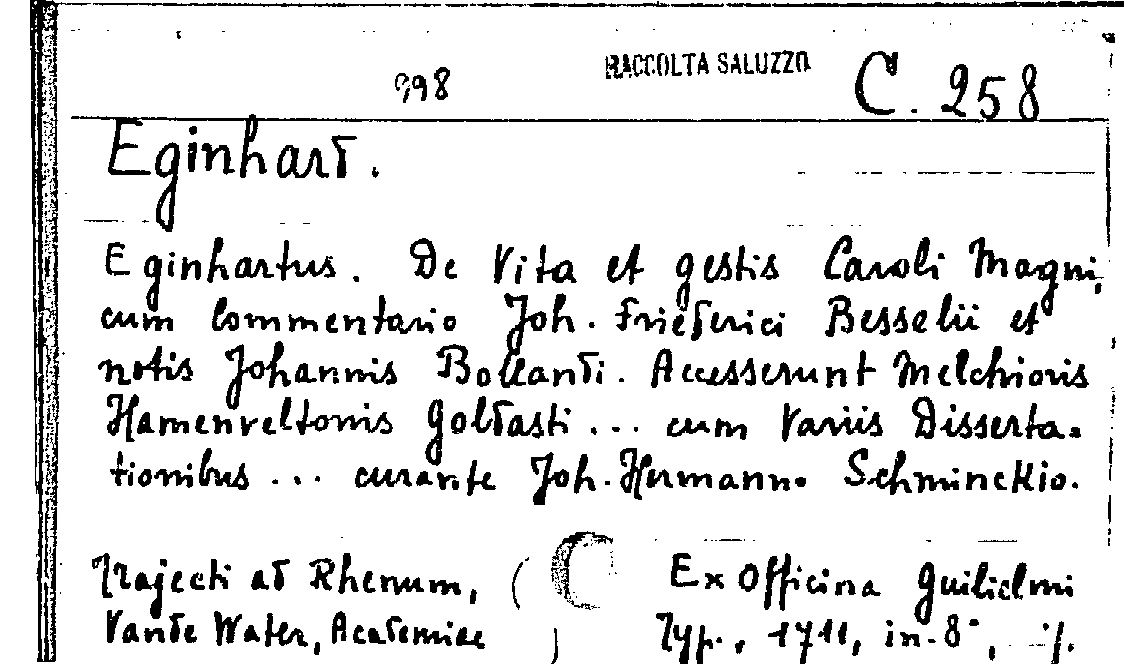 998 RACCOLTA SALUZZO C. 258
Eginhard.
Eginhartus. De Vita et gestis Caroli Magni,
cum commentario Joh. Friederici Besselii et
notis Johannis Bollandi. Accesserunt Melchioris
Hamenveltonis Goldasti... cum variis Disserta-
tionibus... curante Joh. Hermanno Schminckio.
Trajecti ad Rhenum, Ex Officina Guilielmi
Vande Water, Academiae Typ., 1711, in-8°,